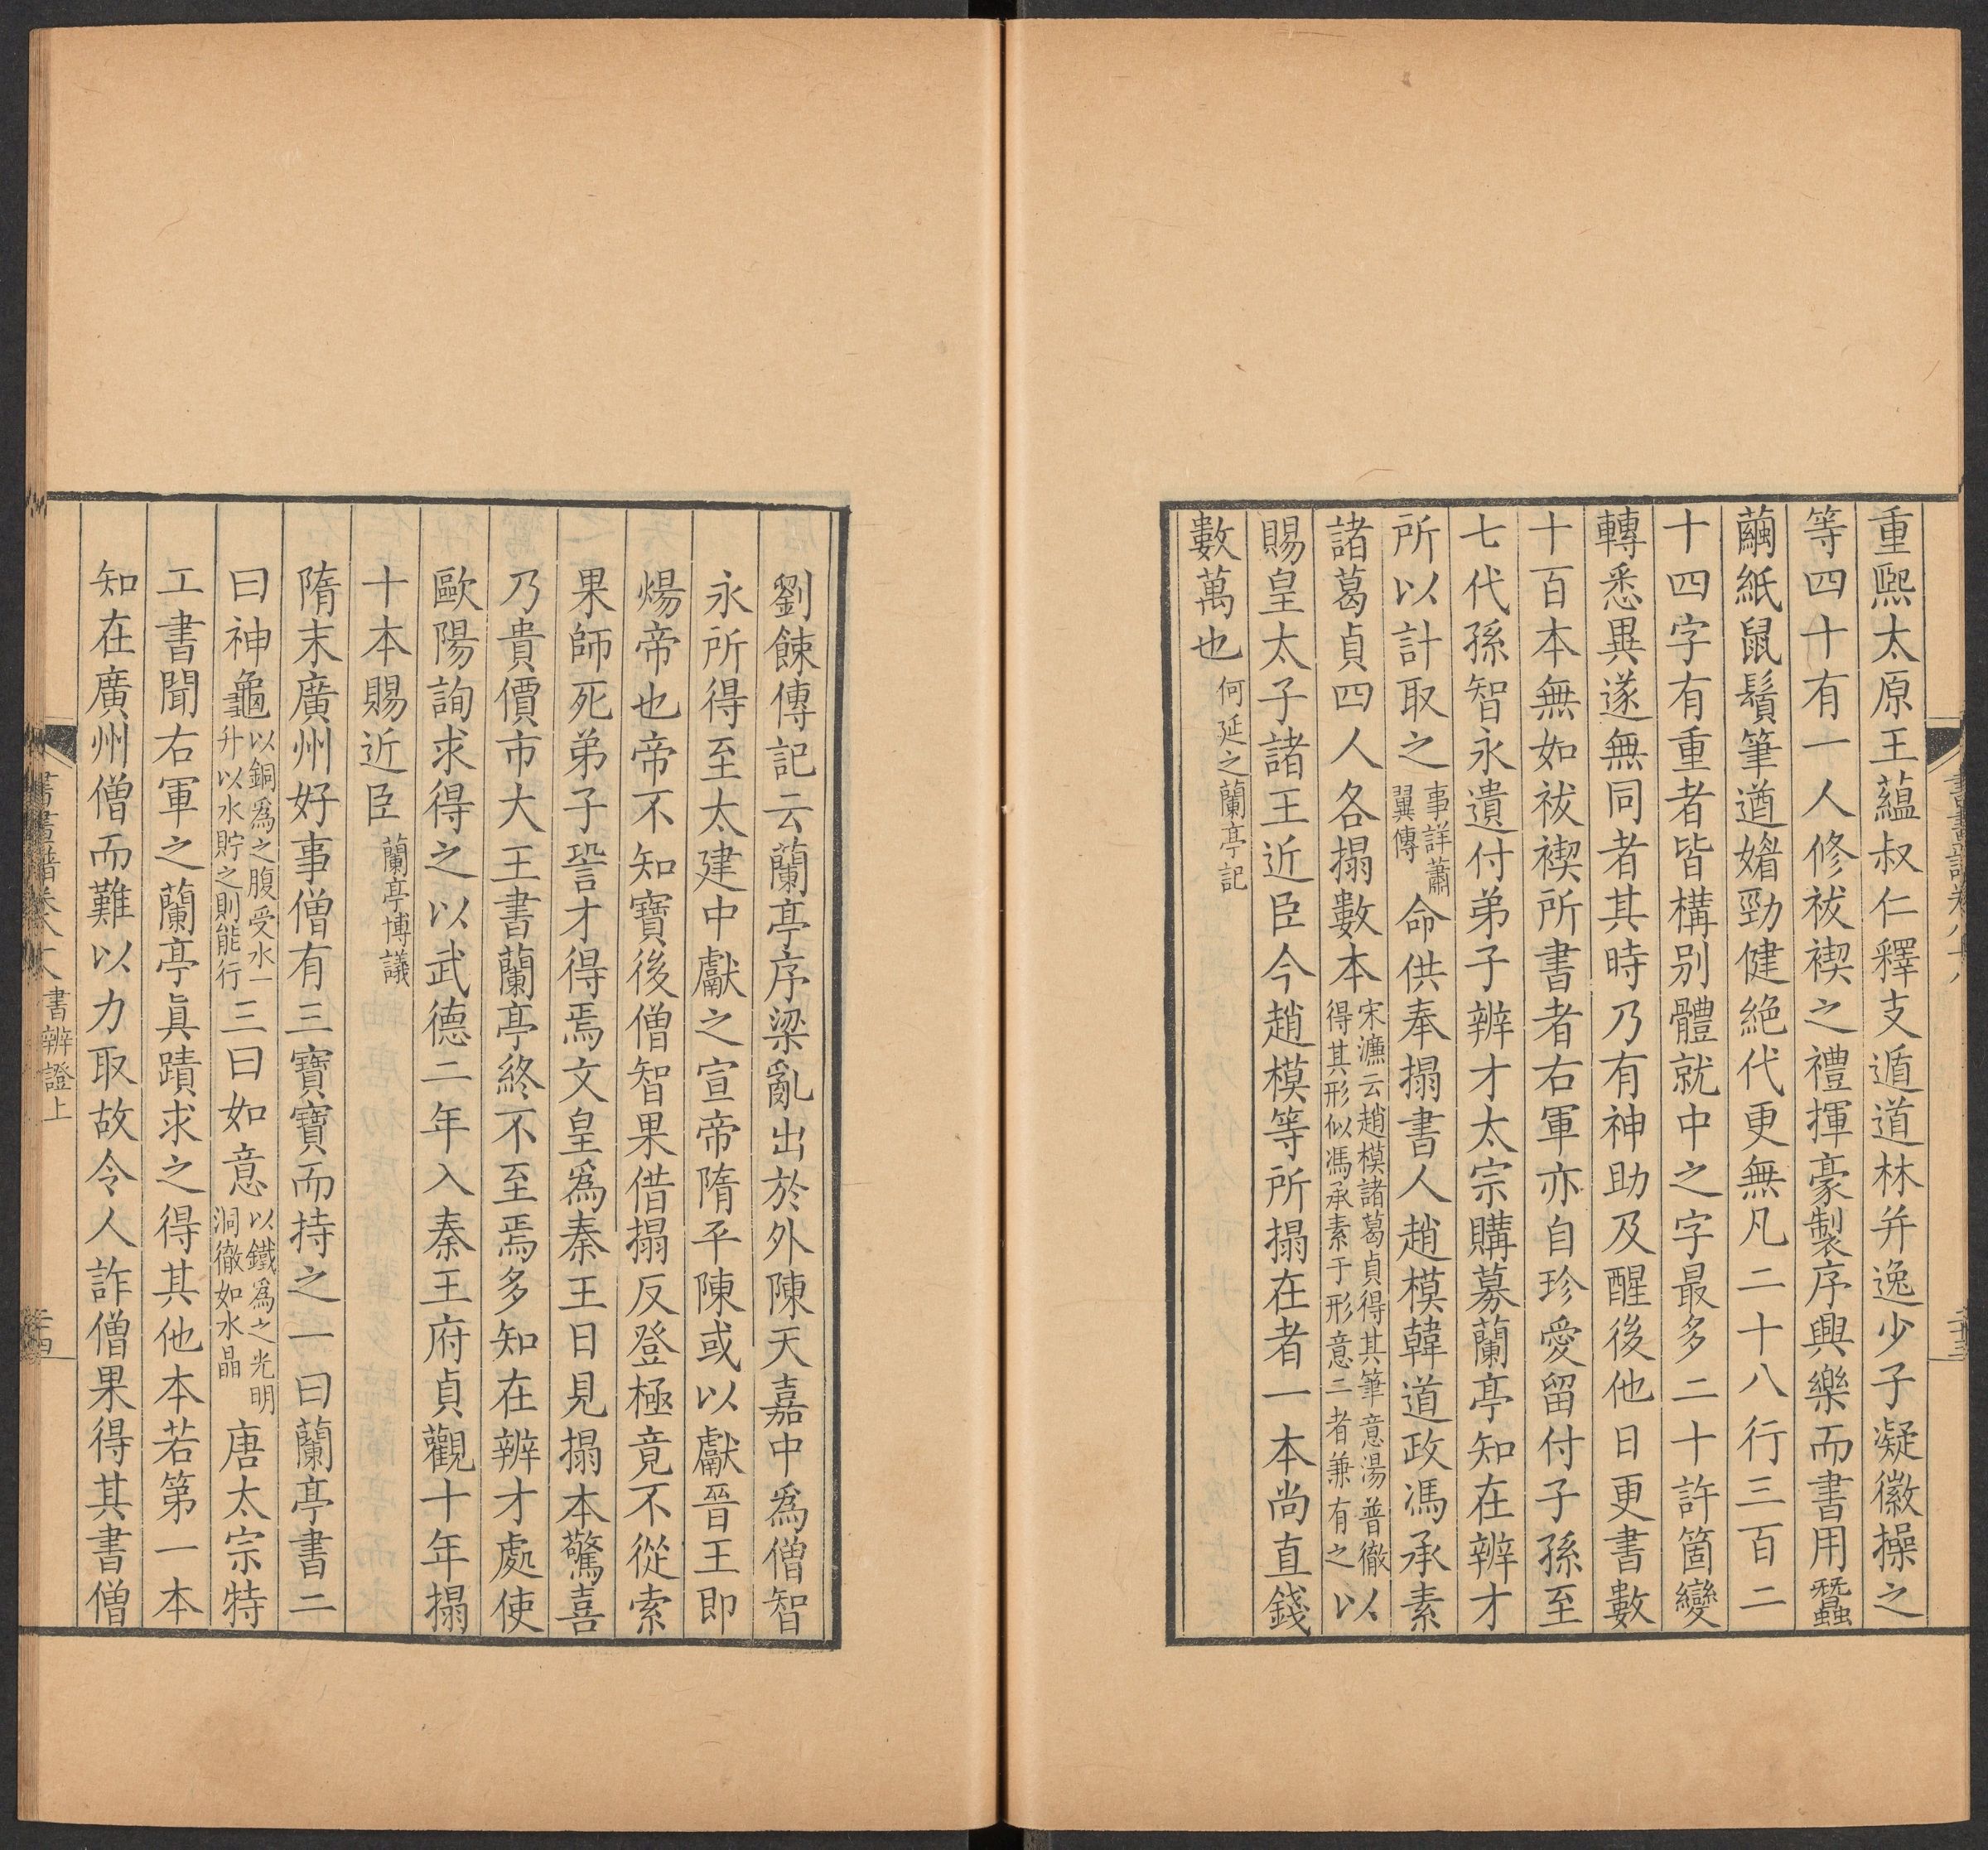 重熙太原王蘊叔仁釋支遁道林并逸少子凝徽操之
等四十有一人修祓禊之禮揮豪製序興樂而書用蠶
繭紙鼠鬚筆遒媚勁健絶代更無凡二十八行三百二
十四字有重者皆構別體就中之字最多二十許箇變
轉悉異遂無同者其時乃有神助及醒後他日更書數
十百本無如祓禊所書者右軍亦自珍愛留付子孫至
七代孫智永遺付弟子辨才太宗購募蘭亭知在辨才
所以計取之事詳蕭翼傳命供奉搨書人趙模韓道政馮承素
諸葛貞四人各搨數本宋濂云趙模諸葛貞得其筆意湯普徹得其形似馮承素于形意二者兼有之以
賜皇太子諸王近臣今趙模等所搨在者一本尚直錢
數萬也何延之蘭亭記
劉餗傳記云蘭亭序梁亂出於外陳天嘉中爲僧智
永所得至太建中獻之宣帝隋平陳或以獻晉王即
煬帝也帝不知寶後僧智果借搨反登極竟不從索
果師死弟子䛒才得焉文皇爲秦王日見搨本驚喜
乃貴價市大王書蘭亭終不至焉多知在辨才處使
歐陽詢求得之以武德二年入秦王府貞觀十年搨
十本賜近臣蘭亭博議
隋末廣州好事僧有三寶寶而持之一曰蘭亭書二
曰神龜以銅爲之腹受水一升以水貯之則能行三曰如意以鐵爲之光明洞徹如水晶唐太宗特
工書聞右軍之蘭亭眞蹟求之得其他本若第一本
知在廣州僧而難以力取故令人詐僧果得其書僧
書辨證上